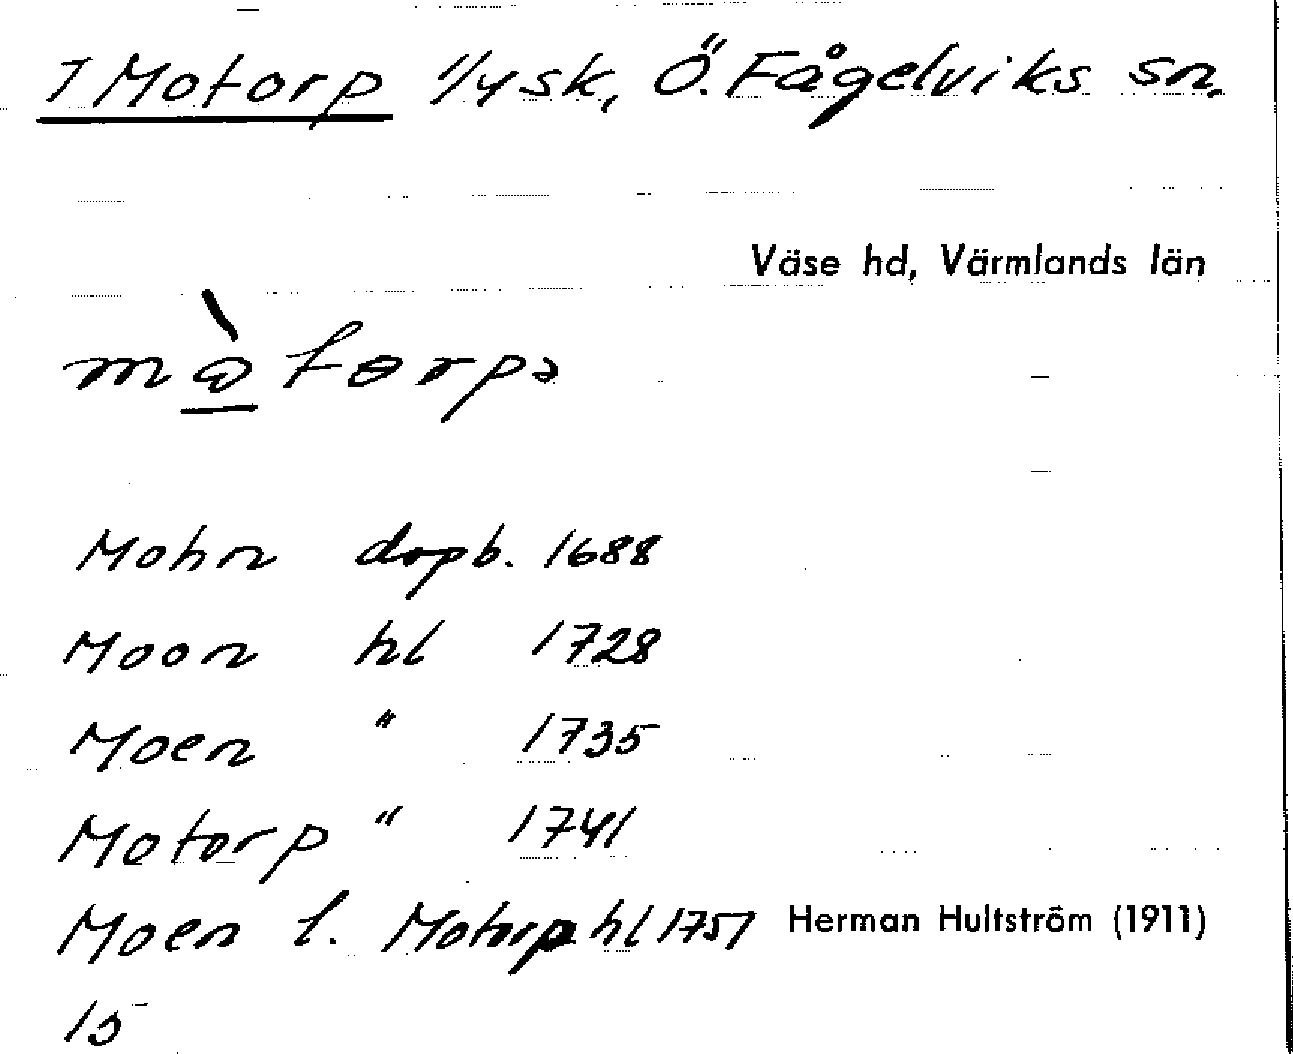 7 Motorp 1/4 sk, Ö. Fågelviks sn.
Väse hd, Värmlands län
mòtɵrpə
Mohn dopb. 1688
Moon hl 1728
Moen " 1735
Motorp " 1741
Moen l. Motorp hl 1757
Herman Hultström (1911)
15